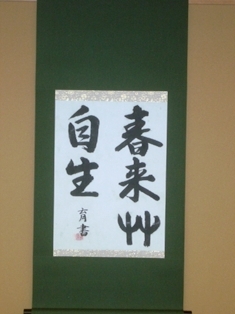 春来艸
自生
育書